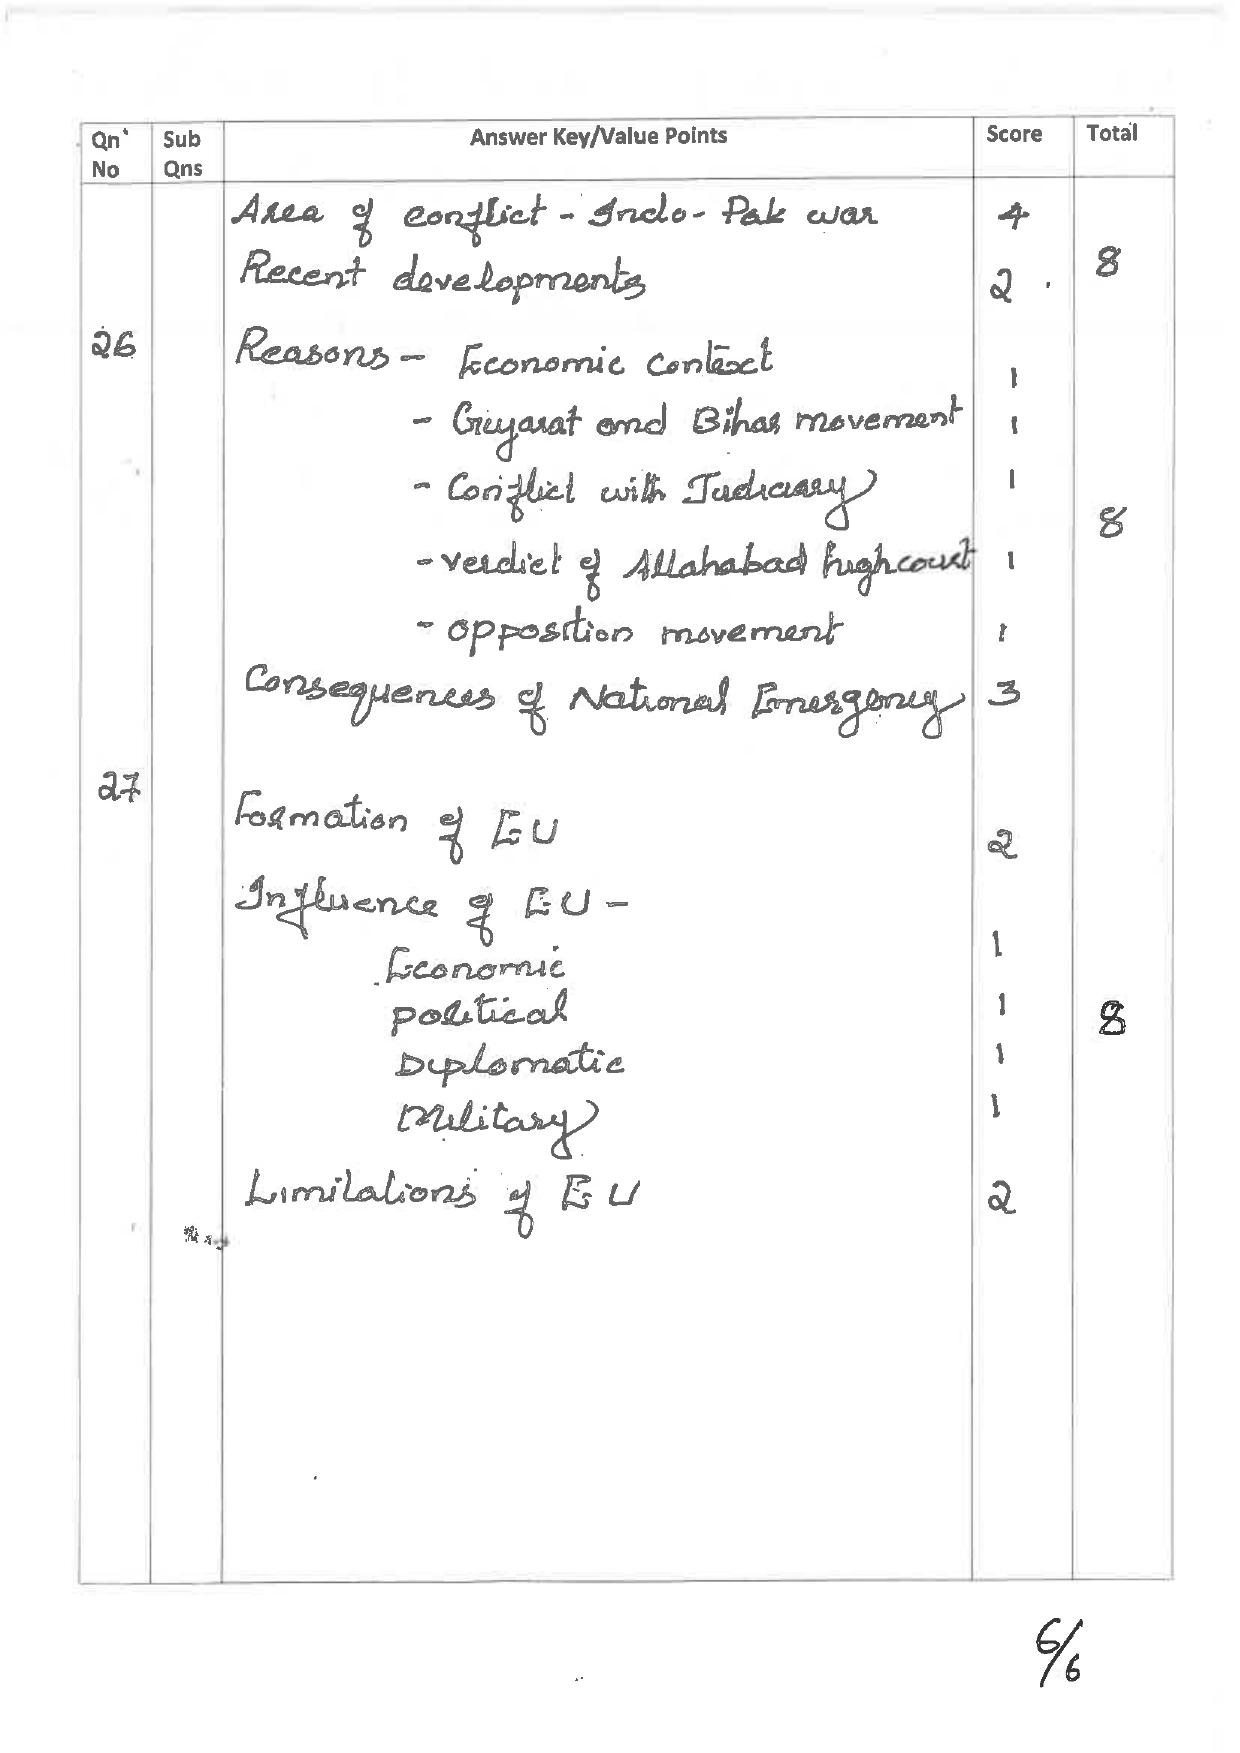 Qn Sub Answer Key/Value Points Score Total
No Qns
Area of conflict - Indo-Pak war 4
Recent developments 2 8
26 Reasons - Economic context 1
- Gujarat and Bihar movement 1
- Conflict with Judiciary 1
8
- verdict of Allahabad high court 1
- opposition movement 1
Consequences of National Emergency 3
27
Formation of EU 2
Influence of EU -
Economic 1
political 1 8
Diplomatic 1
Military 1
Limitations of EU 2
6/6